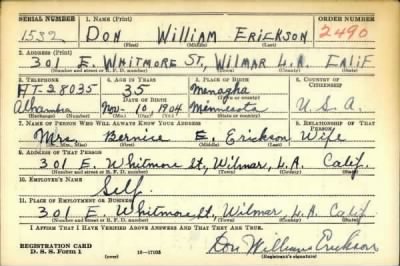 SERIAL NUMBER 1. NAME (Print) ORDER NUMBER
1532 DON WILLIAM ERICKSON 2490
(First) (Middle) (Last)
2. ADDRESS (Print)
301 E. WHITMORE ST, WILMAR L.A. CALIF
(Number and street or R. F. D. number) (Town) (County) (State)
3. TELEPHONE 4. AGE IN YEARS 5. PLACE OF BIRTH 6. COUNTRY OF CITIZENSHIP
AT-28035 35 Menagha
DATE OF BIRTH
Alhambra Nov-10, 1904 Minnesota U.S.A
(Exchange) (Number) (Mo.) (Day) (Yr.) (State or country)
7. NAME OF PERSON WHO WILL ALWAYS KNOW YOUR ADDRESS 8. RELATIONSHIP OF THAT PERSON
Mrs. Bernice E. Erickson Wife
(Mr., Mrs., Miss) (First) (Middle) (Last)
9. ADDRESS OF THAT PERSON
301 E. Whitmore St, Wilmar, L.A. Calif.
(Number and street or R. F. D. number) (Town) (County) (State)
10. EMPLOYER'S NAME
Self.
11. PLACE OF EMPLOYMENT OR BUSINESS
301 E. Whitmore St. Wilmar, L.A. Calif
(Number and street or R. F. D. number) (Town) (County) (State)
I AFFIRM THAT I HAVE VERIFIED ABOVE ANSWERS AND THAT THEY ARE TRUE.
REGISTRATION CARD Don William Erickson
D. S. S. FORM 1 (Registrant's signature)